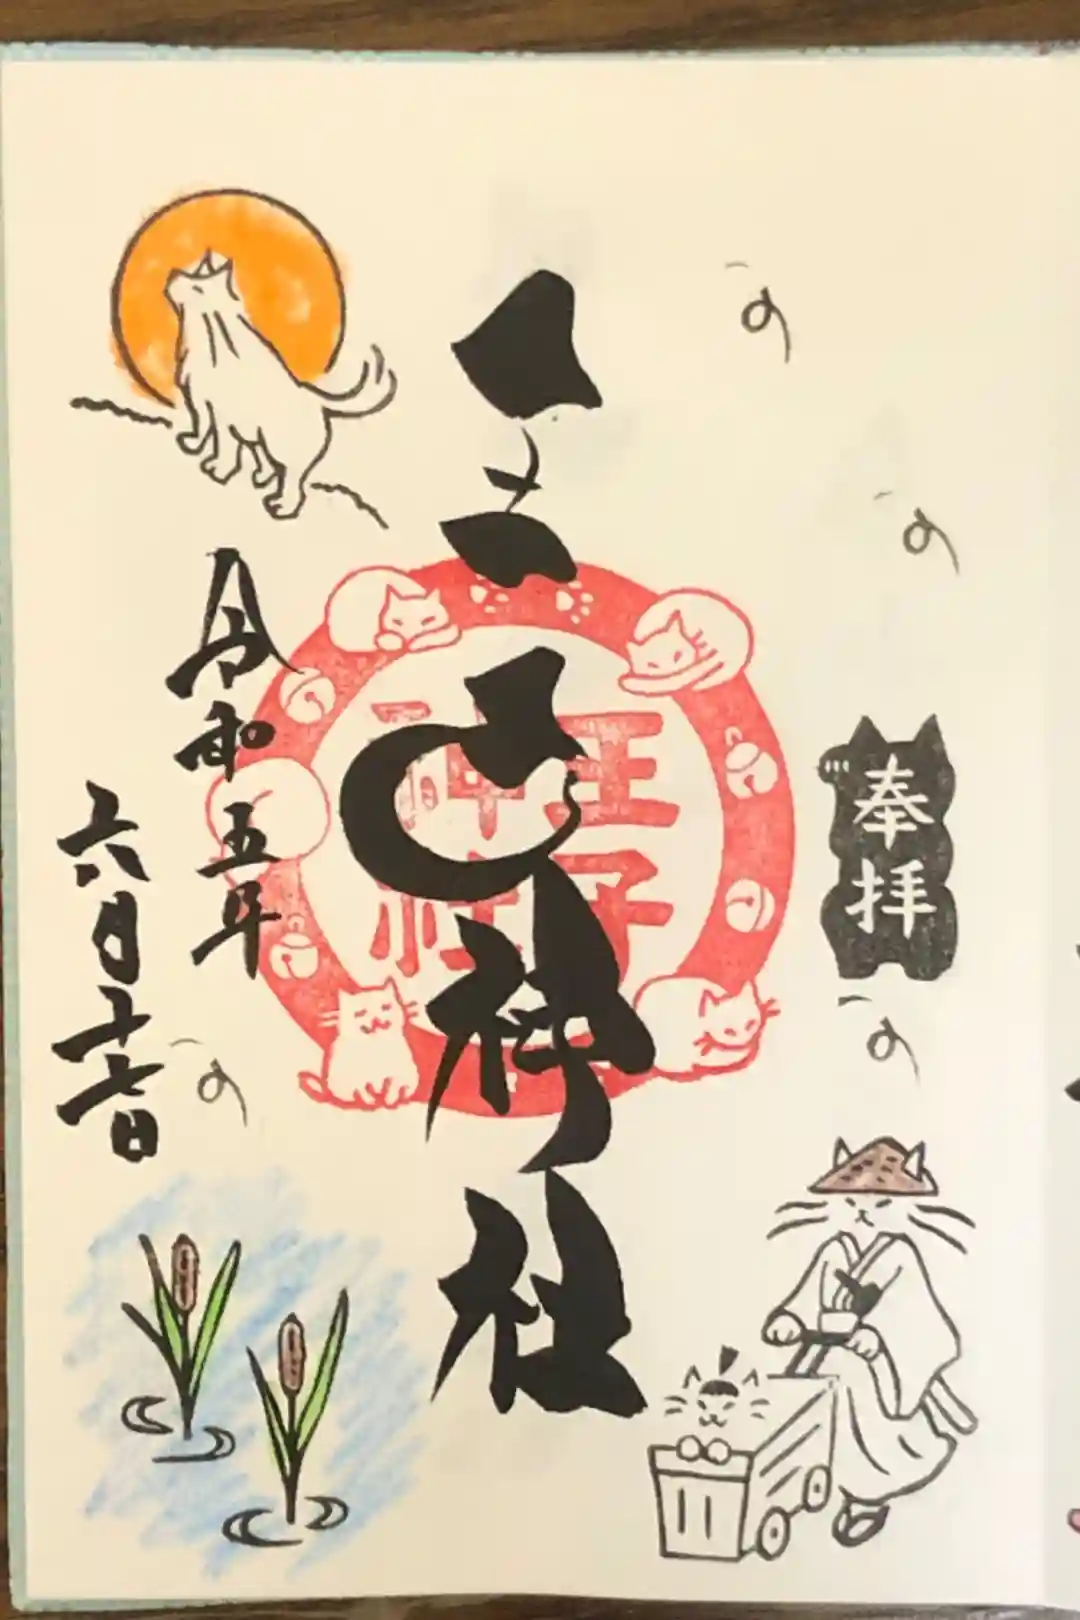 奉拝
王子神社
王子
神社
令和五年
六月十七日